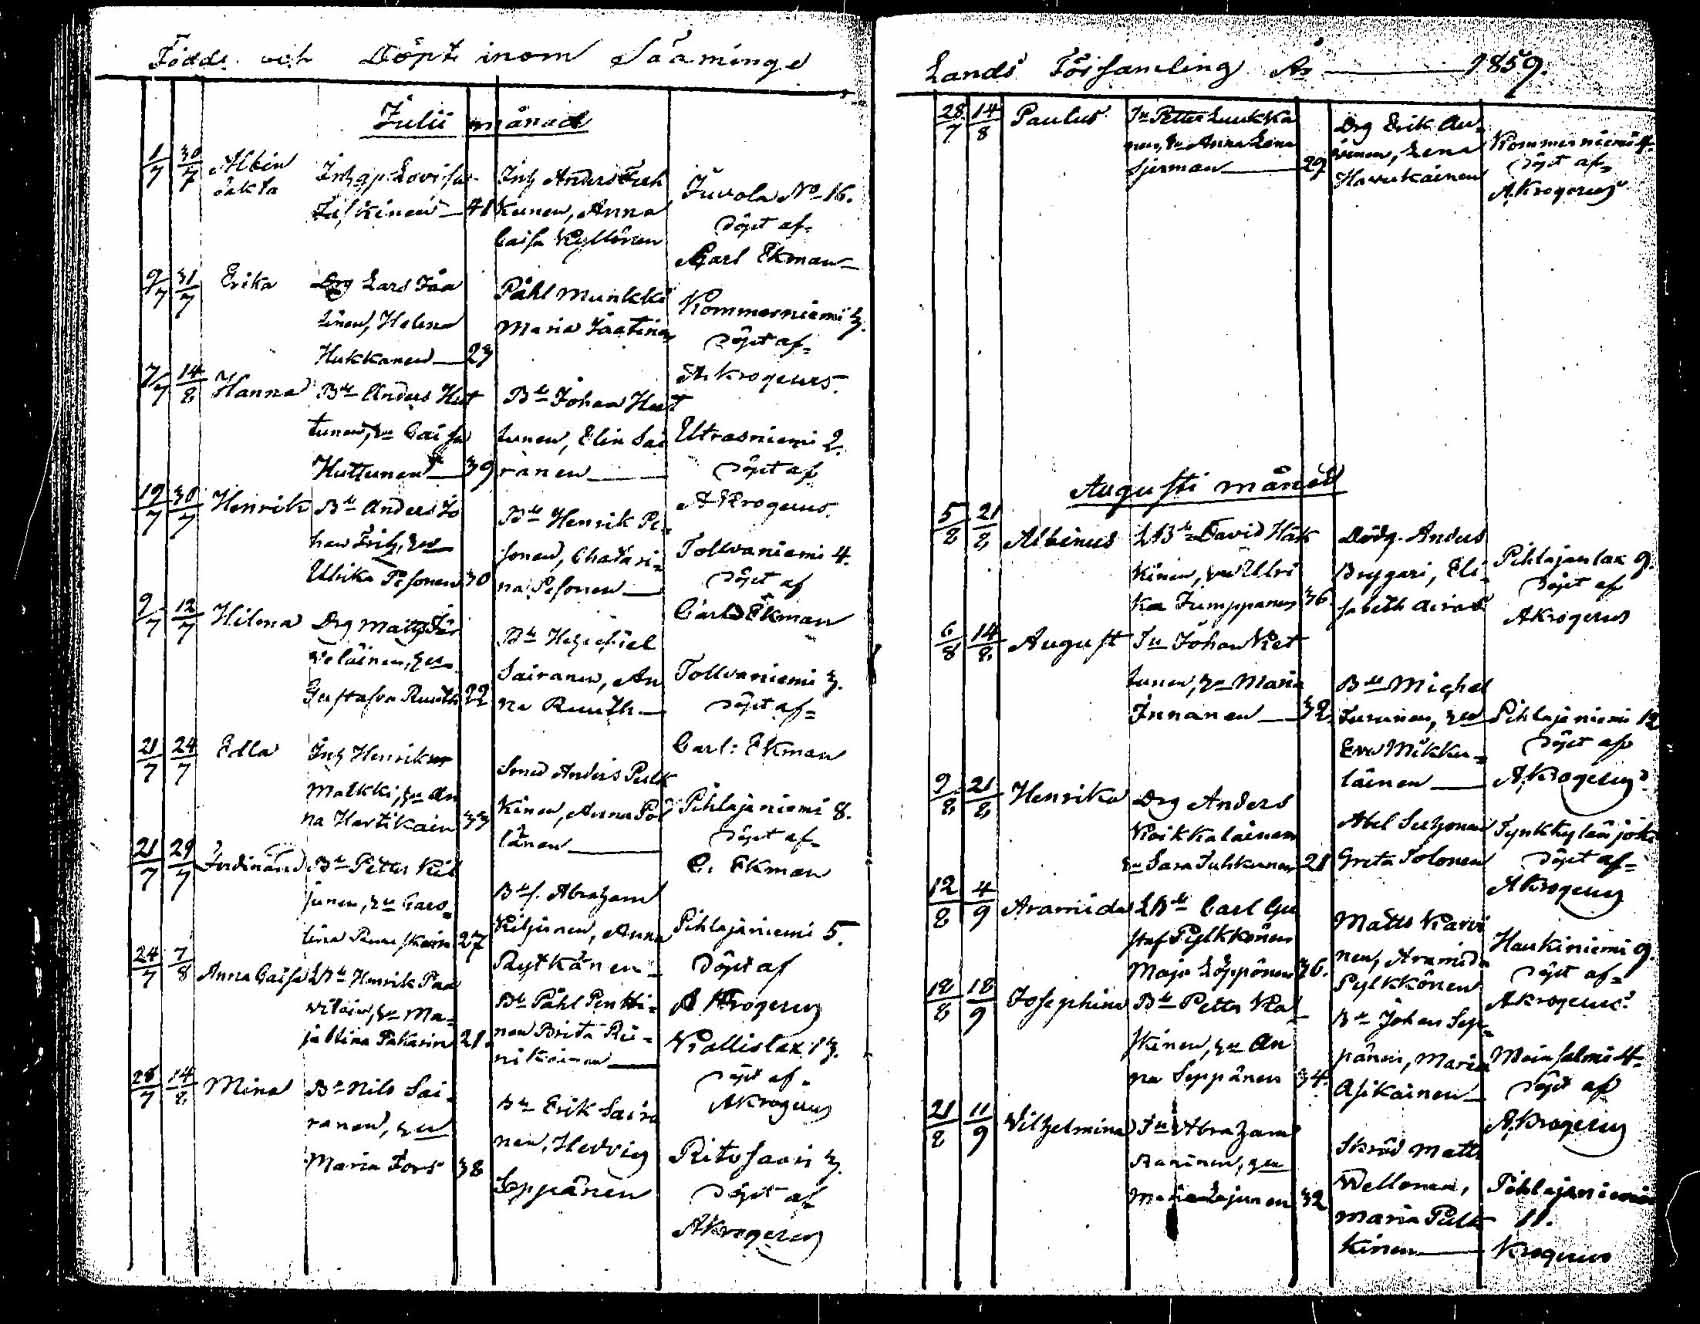 Födde och Döpte inom Sääminge
Julii månad
1/7 30/7 Albin
oäkta
Inhs Anders
41 Kunen, Anna
Caisa Kyllönen
Juvola No 16.
döpt af
Carl Ekman
9/7 31/7 Erika
Drg Lars Jää
tinen, Helena
Hukkanen 23
Påhl Munkki
Maria Jäätinen
Kommerniemi 3.
döpt af
A Krogerus.
7/7 14/8 Hanna
Bde Anders Hut
tunen, hu Caisa
Huttunen 39
Bde Johan Hut
tunen, Elin Sai
ranen
Utrasniemi 2.
döpt af
A Krogerus.
19/7 30/7 Henrik
Bde Anders Jo
han
Ulrika Pesonen 30
Bde Henrik Pe
sonen, Chatari
na Pesonen
Tollvaniemi 4.
döpt af
Carl Ekman
9/7 12/7 Hilma
Drg Matts
veläinen, hu
Gustafva Ruuth 22
Bde Hezechiel
Sairanen, An
na Ruuth
Tollvaniemi 3.
döpt af
Carl: Ekman
21/7 24/7 Edla
Inh Henrik
Malkki, hu An
na Hartikain 33
Smed Anders Pulk
kinen, Anna Pöl
länen
Pihlajaniemi 8.
döpt af
C. Ekman
21/7 29/7 Ferdinand
Bde Petter Kil
junen, hu Caro
lina 27
Bdes. Abraham
Kiljunen, Anna
Rytkänen
Pihlajaniemi 5.
Döpt af
A Krogerus
24/7 7/8 Anna Caisa
LBde Henrik Paa
vilain, hu Ma
ja Stina Pakarin 21.
Bde Påhl Pentti
nen Brita Rii
nikainen
Kallislax 13.
döpt af
A Krogerus
28/7 14/8 Mina
Bde Nils Sai
ranen, hu
Maria Fors 38
Bde Erik Saira
nen, Hedvig
Seppänen
Ritosaari 3.
döpt af
A Krogerus
Lands Församling År 1859.
28/7 14/8 Paulus
In Petter Luukka
nen, hu Anna Lena
Sjerman 29
Drg Erik Au
vinen, Lena
Havukainen
Kommerniemi 4.
döpt af
A. Krogerus
Augusti månad
5/8 21/8 Albinus
LBde David Häk
kinen, hu Ulri
ka Tumppanen 36
Dödg. Anders
Brygari, Eli
sabeth
Pihlajanlax 9.
döpt af
A Krogerus
6/8 14/8 August
In Johan Ket
tunen, hu Maria
Innanen 32
Bde Michel
Turunen, hu
Eva Mikku
läinen
Pihlajaniemi 12
döpt af
A. Krogerus
9/8 21/8 Henrika
Drg Anders
Koikkalainen
hu Sara Tuhkunen 21
Abel Suhonen
Greta Tolonen
Tynkkylänjoki
döpt af
A Krogerus
12/8 4/9 Aramida
LBde Carl Gu
staf Pylkkönen
Maja Löppönen 36.
Matts Karvi
nen, Aramida
Pylkkönen
Haukiniemi 9.
döpt af
A Krogerus
18/8 18/9 Josephina
Bde Petter Kal
skinen, hu An
na Seppänen 34.
Bde Johan Sep
pänen, Maria
Asikainen
Moinsalmi 4.
döpt af
A. Krogerus
21/8 11/9 Vilhelmina
In Abraham
Raninen, hu
Maria Lajunen 32
Skräd Matts
Vellonen,
Maria Pulk
kinen
Pihlajaniemi
11.
Krogerus